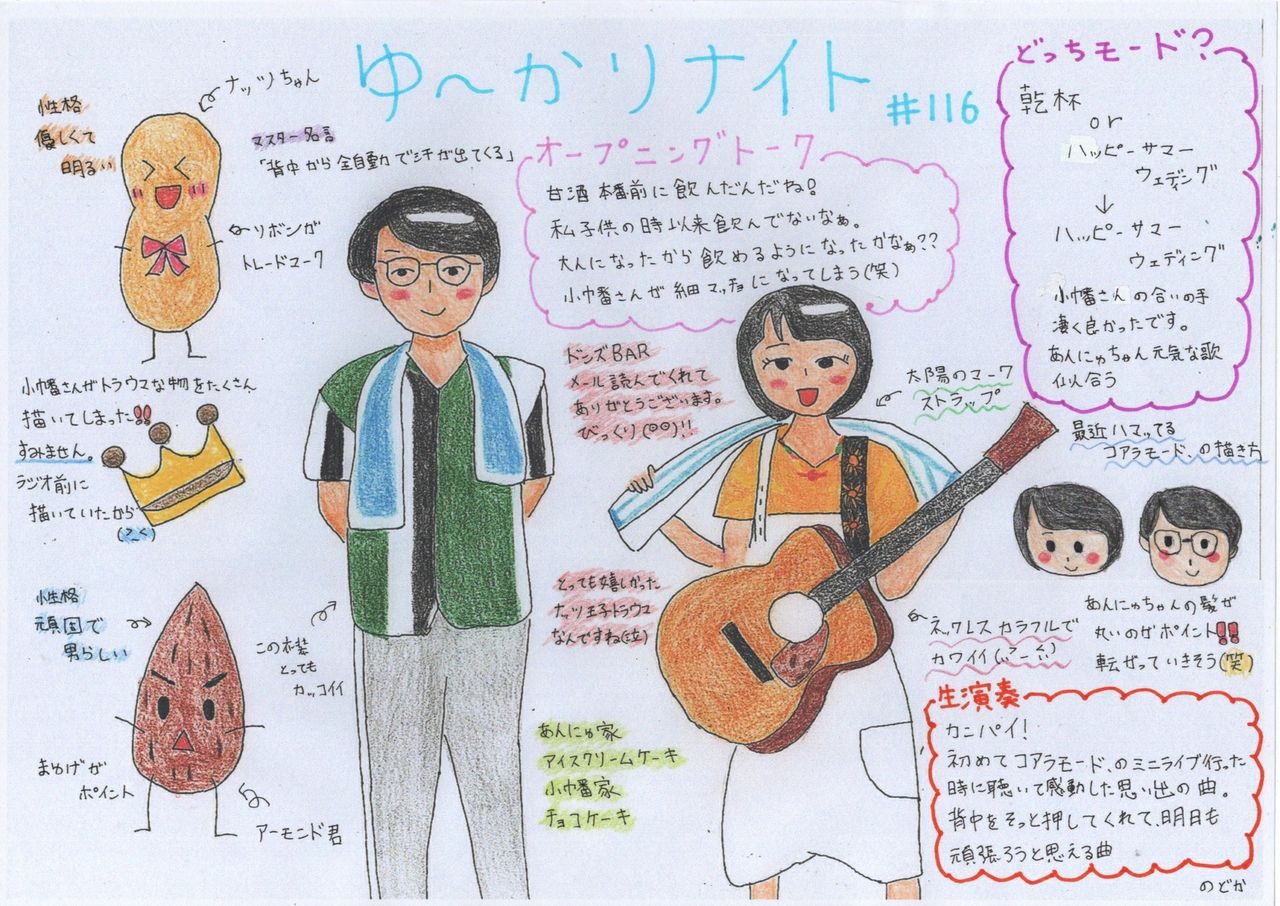 ゆ～かりナイト
#116
ナッツちゃん
性格
優しくて
明るい
リボンが
トレードマーク
マスター名言
「背中から全自動で汗が出てくる」
オープニングトーク
甘酒本番前に飲んだんだね!
私子供の時以来飲んでないなぁ。
大人になったから飲めるようになったかなぁ??
小幡さんが細マッチョになってしまう(笑)
どっちモード?
乾杯
or
ハッピーサマー
ウェディング
↓
ハッピーサマー
ウェディング
小幡さんの合いの手
凄く良かったです。
あんにゅちゃん元気な歌
似合う
小幡さんがトラウマな物をたくさん
描いてしまった!!
すみません。
ラジオ前に
描いていたから
ドンズBAR
メール読んでくれて
ありがとうございます。
びっくり(○○)!!
太陽のマーク
ストラップ
最近ハマッてる
コアラモード.の描き方
あんにゅちゃんの髪が
丸いのがポイント!!
転がっていきそう(笑)
性格
頑固で
男らしい
まゆげが
ポイント
アーモンド君
この衣装
とっても
カッコイイ
とっても嬉しかった
ナッツ王子トラウマ
なんですね(泣)
ネックレスカラフルで
カワイイ
あんにゅ家
アイスクリームケーキ
小幡家
チョコケーキ
生演奏
カンパイ!
初めてコアラモード.のミニライブ行った
時に聴いて感動した思い出の曲。
背中をそっと押してくれて、明日も
頑張ろうと思える曲
のどか